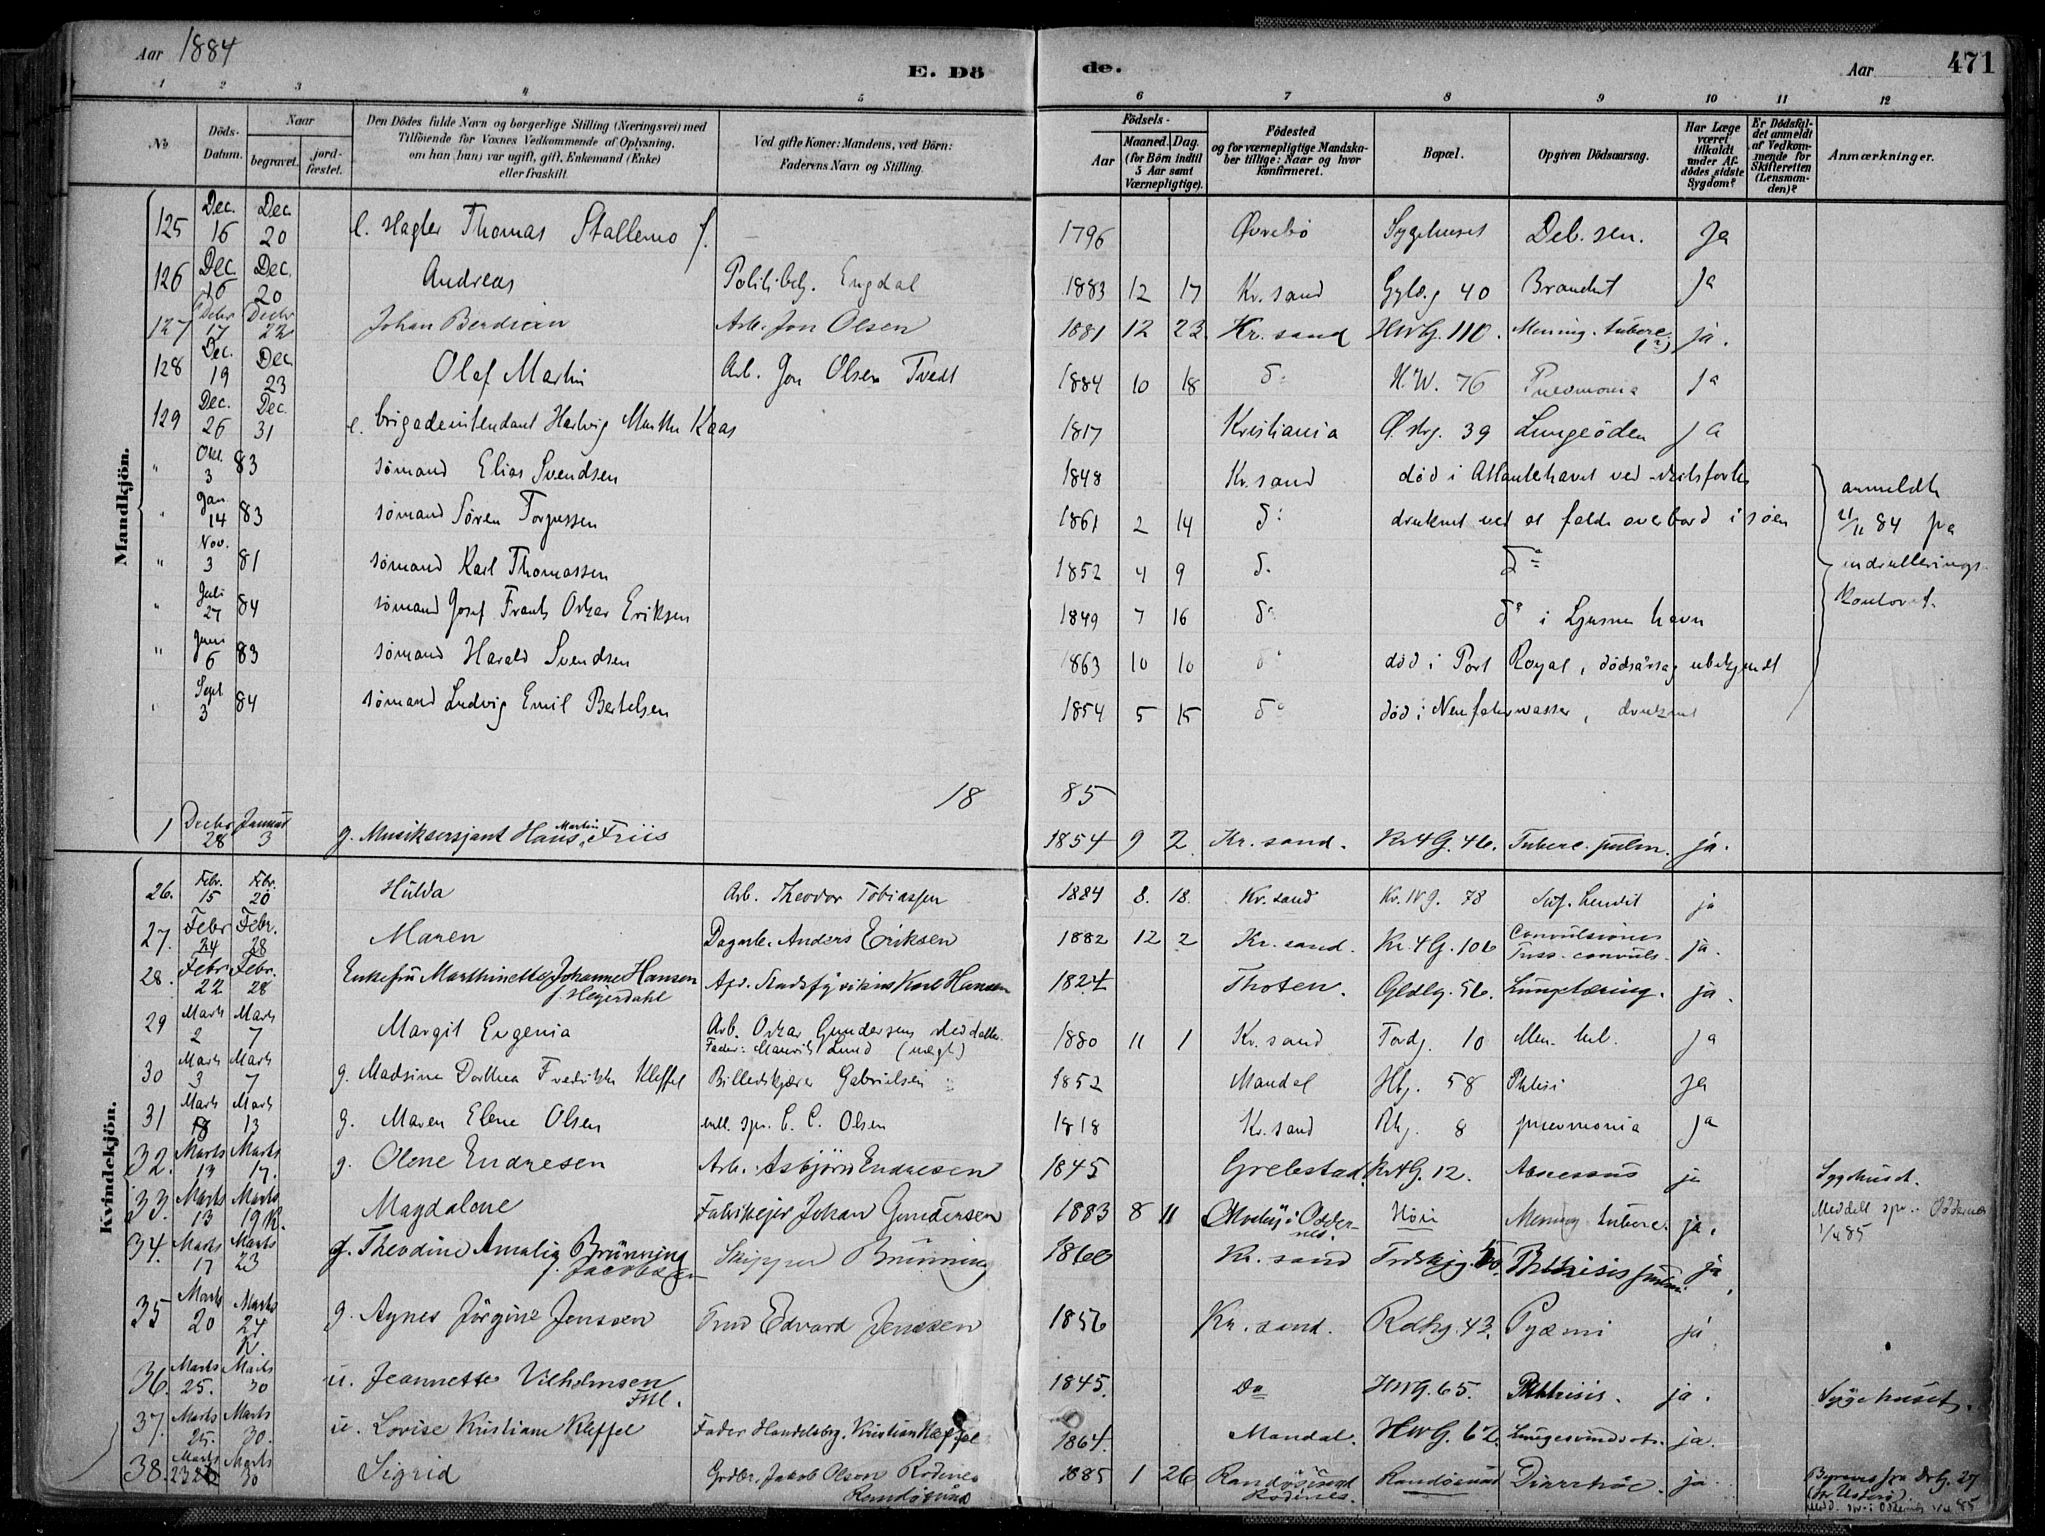 Aar 1884
E. Dö de.
Aar 471
1 2 3 4 5 6 7 8 9 10 11 12
No
Döds-Datum.
Naar
begravet.
jord-fæstet.
Den Dödes fulde Navn og borgerlige Stilling (Næringsvei) med
Tilföiende för Voxnes Vedkommende af Oplysning,
om han (hun) var ugift, gift, Enkemand (Enke)
eller fraskilt.
Ved gifte Koner: Mandens, ved Börn:
Faderens Navn og Stilling.
Födsels-
Aar
Maaned. Dag.
(for Börn indtil
5 Aar samt
Værnepligtige).
Födested
og for værnepligtige Mandska-
ber tillige: Naar og hvor
konfirmeret.
Bopæl.
Opgiven Dödsaarsag.
Har Læge
været
tilkaldt
under Af-
dödes sidste
Sygdom?
Er Dödsfal-
det anmeldt
af Vedkom-
mende for
Skifteretten
(Lensman-
den)?
Anmærkninger.
Mandkjön.
125 Dec. 16 Dec 20 e. Thomas Stallemo f. 1796 Øvrebö Sygehuset Deb. sen. Ja
126 Dec. 16 Dec. 20 Andreas Politibetj. Engdal 1883 12 17 Kr.sand Gyldg 40 Ja
127 Decbr 17 Decbr 22 Johan Berdian Arb. Jon Olsen 1881 12 23. Kr.sand HWG. 110. Mening. tuberc. (?) ja.
128 Dec. 19 Dec 23 Olaf Martin Arb. Jon Olsen Tvedt 1884 10 18 do H.W. 76 Pneumonia Ja
129 Dec. 26 Dec. 31 e. brigadeintendant Hartvig Kaas 1817 Kristiania Ø. strg. 39 Lungeöden Ja
" Okt. 3 83 sømand Elias Svendsen 1848 Kr.sand død i Atlanterhavet ved
" Jan 14 83 sømand Søren Torjussen 1861 2 14 do druknet ved at falde overbord i søen
" Nov. 3 81 sømand Karl Thomassen 1852 4 9 do do
" Juli 27 84 sømand Josef Frants Oskar Eriksen 1849 7 16 do do i Ljusne havn
" Juni 6 83 sømand Harald Svendsen 1863 10 10 do død i Port Royal, dødsårsag ubekjendt
" Sept 3 84 sømand Ludvig Emil Bertelsen 1854 5 15 do død i Neufahrwasser, druknet
anmeldt
21/11 84 pa
indrullerings-
kontoret.
18 85
1 Decbr 28 Januar 3 g. Musiksersjant Hans Martin Friis 1854 9 2 Kr.sand. Kr4G. 46. Tuberc. pulm. ja.
Kvindekjön.
26. Febr. 15 Febr. 20 Hulda Arb. Theodor Tobiassen 1884 8. 18. Kr.sand Kr.IVG. 78 ja
27. Febr 24 Febr. 28 Maren Dagarb. Anders Eriksen 1882 12 2 Kr.sand. Kr.4G. 106 Convulsiones Tuss. convuls. ja.
28. Febr 22 Febr. 28 Enkefru Marthinette Johanne Hansen f. Heyerdahl Afd. Stadsfysikus Karl Hansen 1824 Thoten. Gldlg. 56. Lungetæring. ja.
29 Marts 2 Marts 7 Margit Eugenia Arb. Oskar Gundersens steddatter. Fader: Mauritz Lund (uægt) 1880 11 1 Kr.sand Tordg. 10 Men. tub. Ja
30 Marts 3 Marts 7 g. Madsine Dorthea Fredrikke Kleffel Billedskjærer Gabrielsen 1852 Mandal Hbg. 58 Phtisi Ja
31 Marts 8 Marts 13 g. Maren Elene Olsen C. C. Olsen 1818 Kr.sand Rhg. 8 pneumonia Ja
32. Marts 13 Marts 17. g. Olene Endresen Arb. Asbjörn Endresen 1845 Grebstad. Kr4G. 12. Abscessus ja Sygehuset.
33. Marts 13 Marts 19 K. Magdalone Fabrikejer Johan Gundersen 1883 8 11 i Oddernes. Höie Mening tuberc. ja. Meddelt spr. i Oddernes 1/4 85
34. Marts 17 Marts 23 g. Theodine Amalia Brünning f. Jacobsen Skipper Brünning 1860 Kr.sand Phthisis pulm. ja.
35 Marts 20 Marts 24 K. g. Agnes Jörgine Jensen Edvard Jensen 1856 Kr.sand. Rdhg. 43. Pyæmi ja
36. Marts 25. Marts 30 u. Jeannette Vilhelmsen Fttl. 1845. Do HWG. 65. Phthisis. ja. Sygehuset.
37. Marts 25. Marts 30. u. Lovise Kristiane Kleffel Fader Handelsbrg. Kristian Kleffel 1864. Mandal. HWG. 62. ja.
38. Marts 23 Marts 30 Sigrid Grdbr. Jakob Olson Rodenes Randösund 1885 1 26 Randösund Rodenes. Randösund Diarrhöe. ja